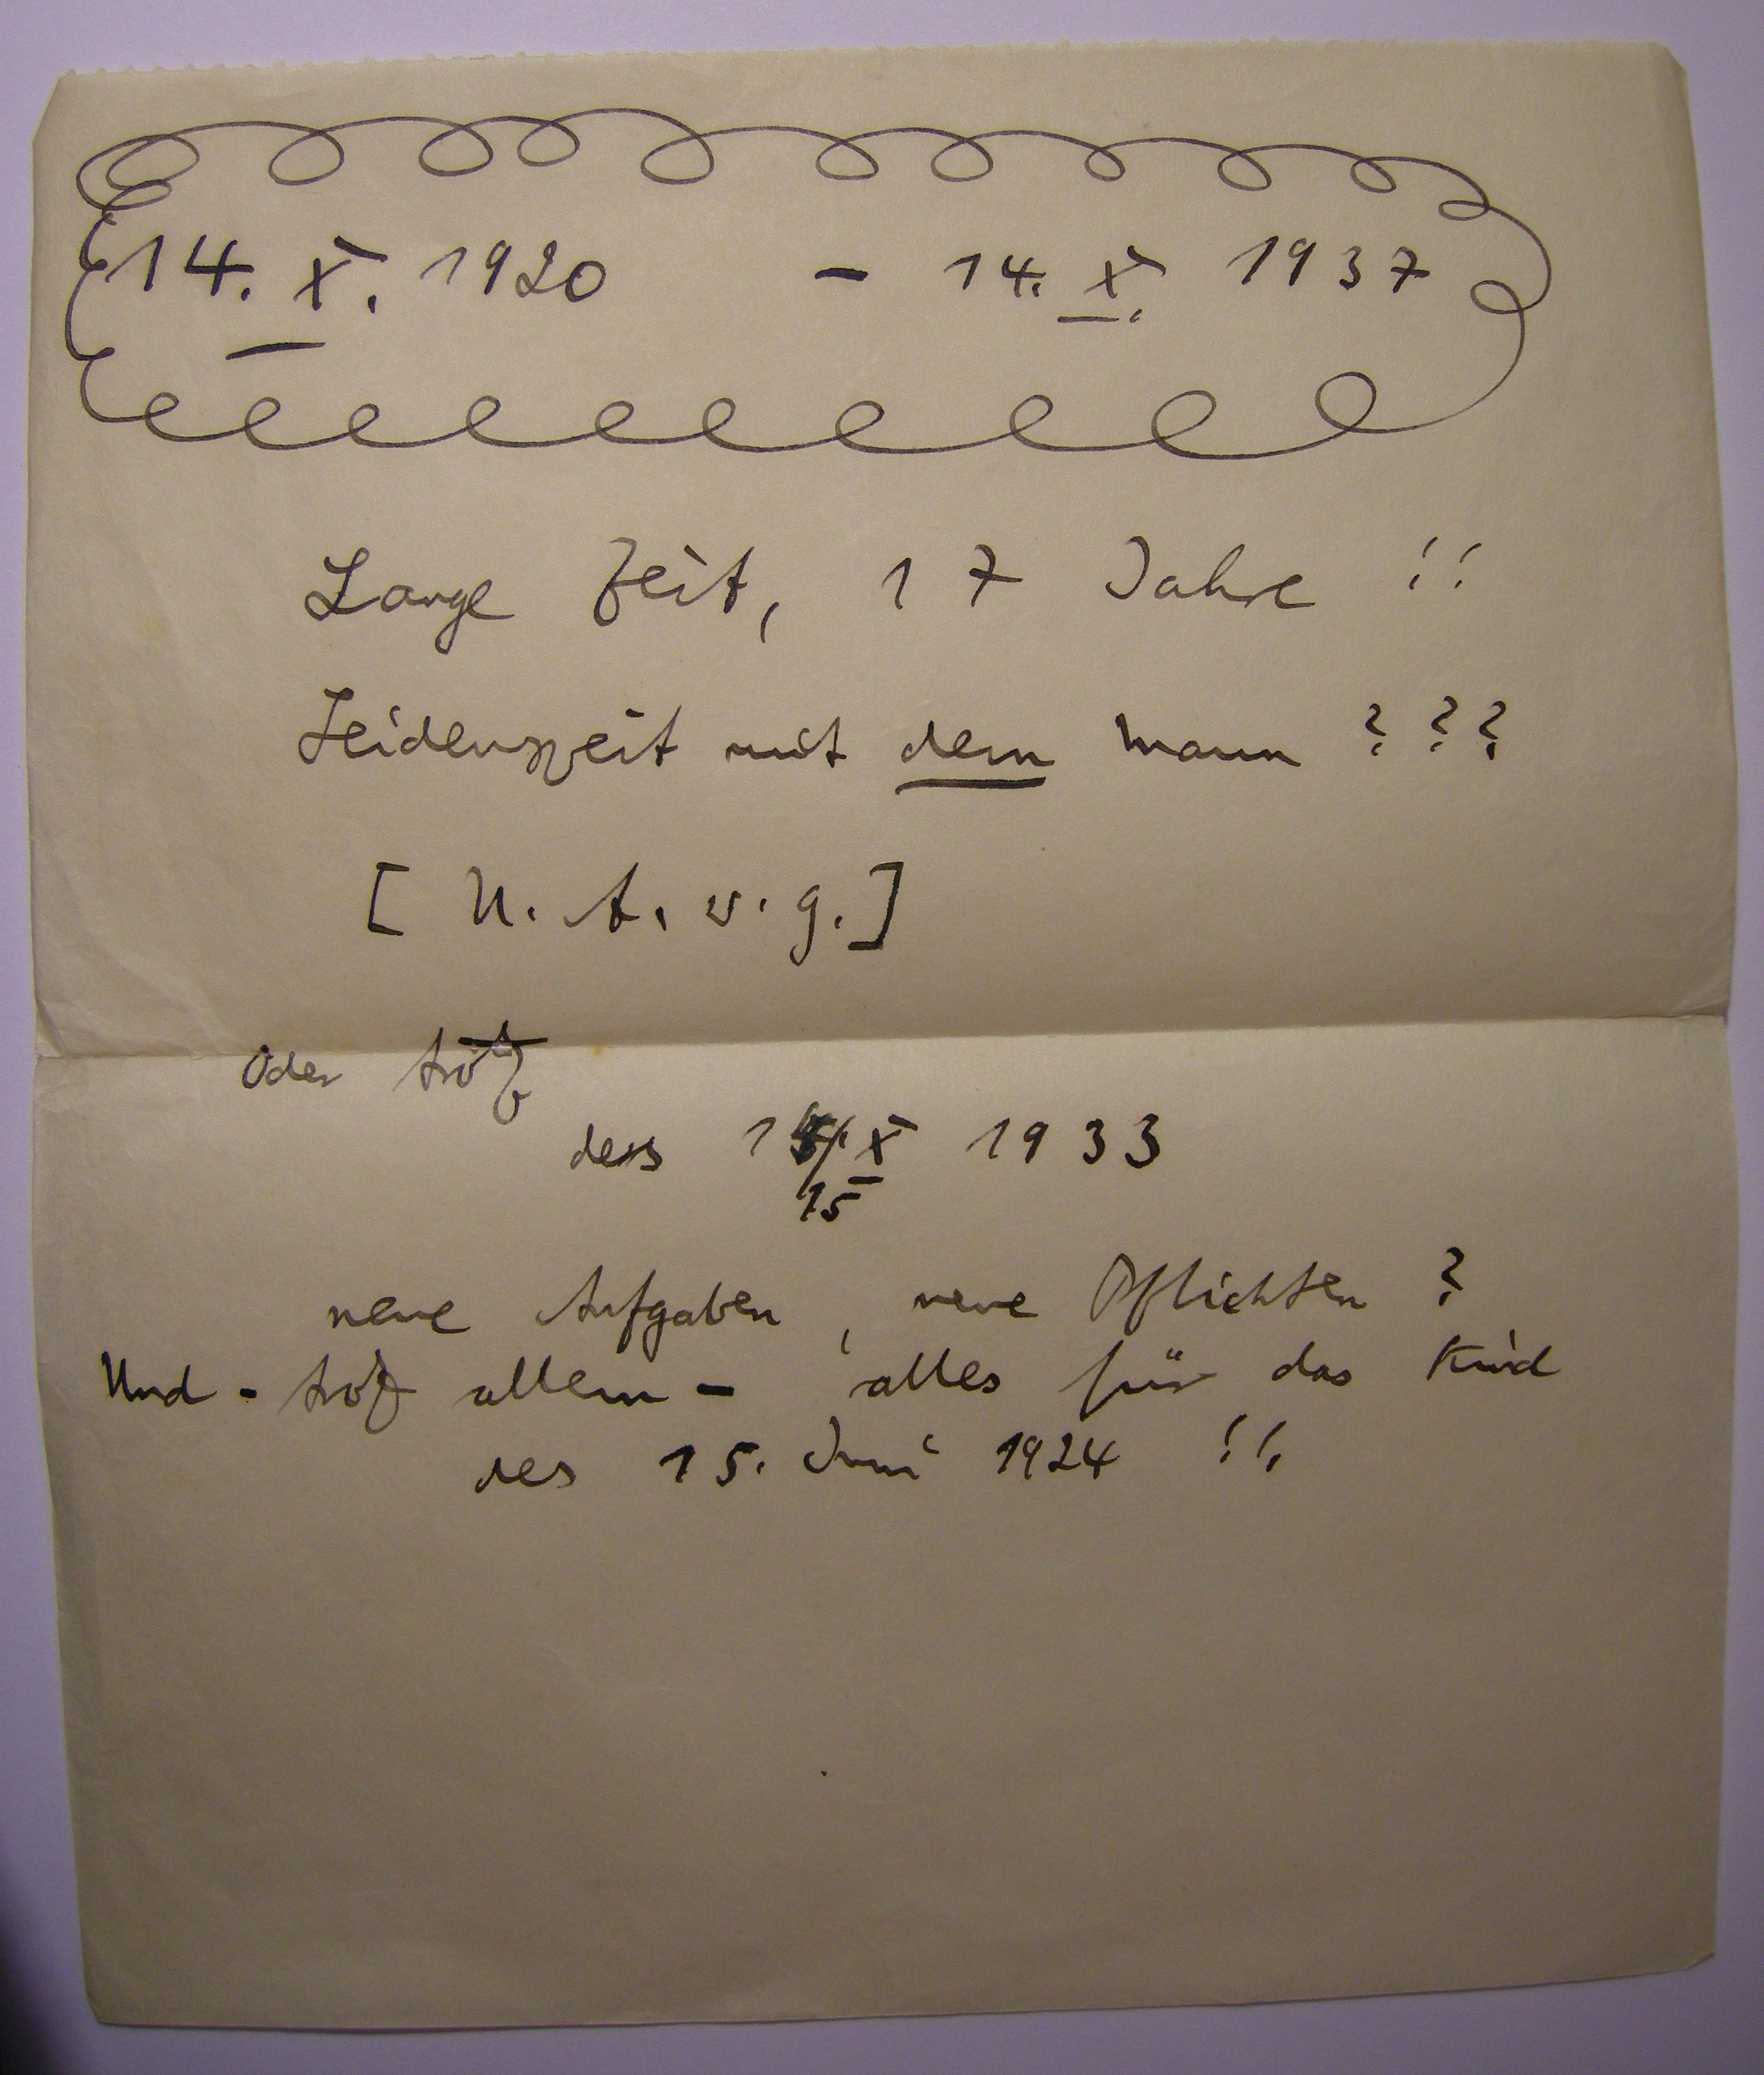 14. X. 1920 - 14. X. 1937
Lange Zeit, 17 Jahre !!
Leidenszeit mit dem Mann ???
[ U. A. v. g. ]
Oder trotz
des X 1933
15
neue Aufgaben, neue Pflichten ?
Und - trotz allem - alles für das Kind
des 15. Juni 1924 !!